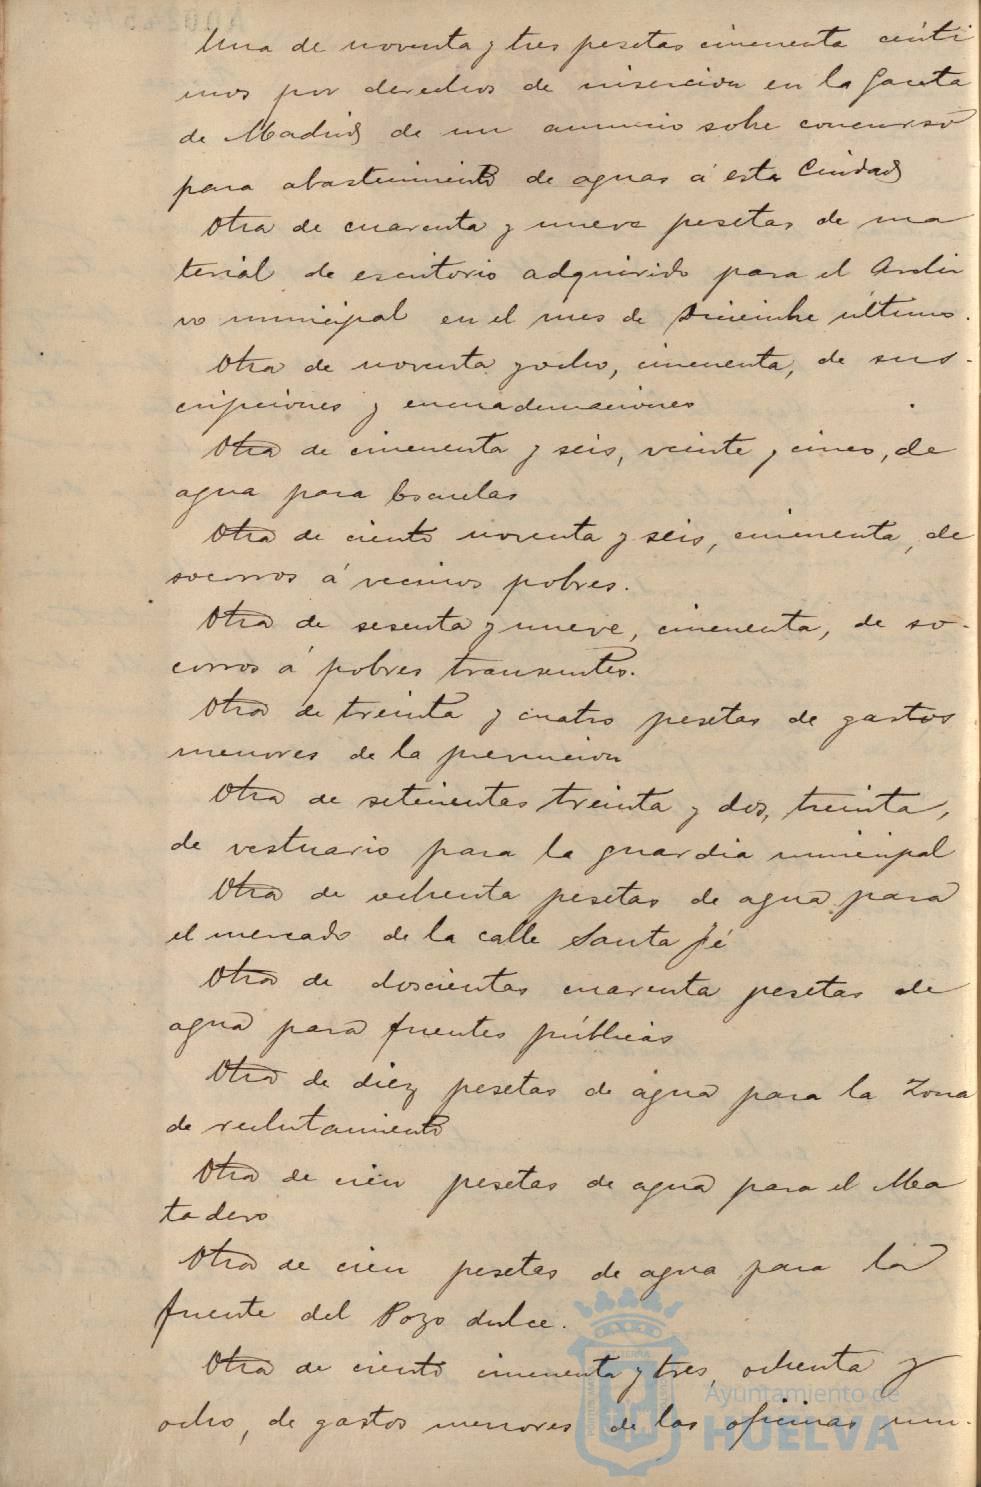 Una de noventa y tres pesetas cincuenta cénti
mos por derechos de insercion en la Gaceta
de Madrid de un anuncio sobre concurso
para abastecimiento de aguas á esta Ciudad
Otra de cuarenta y nueve pesetas de ma
terial de escritorio adquirido para el Archi
vo municipal en el mes de Diciembre último.
Otra de noventa y ocho, cincuenta, de sus-
cripciones y encuadernaciones
Otra de cincuenta y seis, veinte y cinco, de
agua para Escuelas
Otra de ciento noventa y seis, cincuenta, de
socorros á vecinos pobres.
Otra de sesenta y nueve, cincuenta, de so-
corros á pobres transeuntes.
Otra de treinta y cuatro pesetas de gastos
menores de la prevencion
Otra de setecientas treinta y dos, treinta,
de vestuario para la guardia municipal
Otra de ochenta pesetas de agua para
el mercado de la calle Santa Fé
Otra de doscientas cuarenta pesetas de
agua para fuentes públicas
Otra de diez pesetas de agua para la Zona
de reclutamiento
Otra de cien pesetas de agua para el Ma
tadero
Otra de cien pesetas de agua para la
fuente del Pozo dulce.
Otra de ciento cincuenta y tres, ochenta y
ocho, de gastos menores de las oficinas mu-
Ayuntamiento de
HUELVA